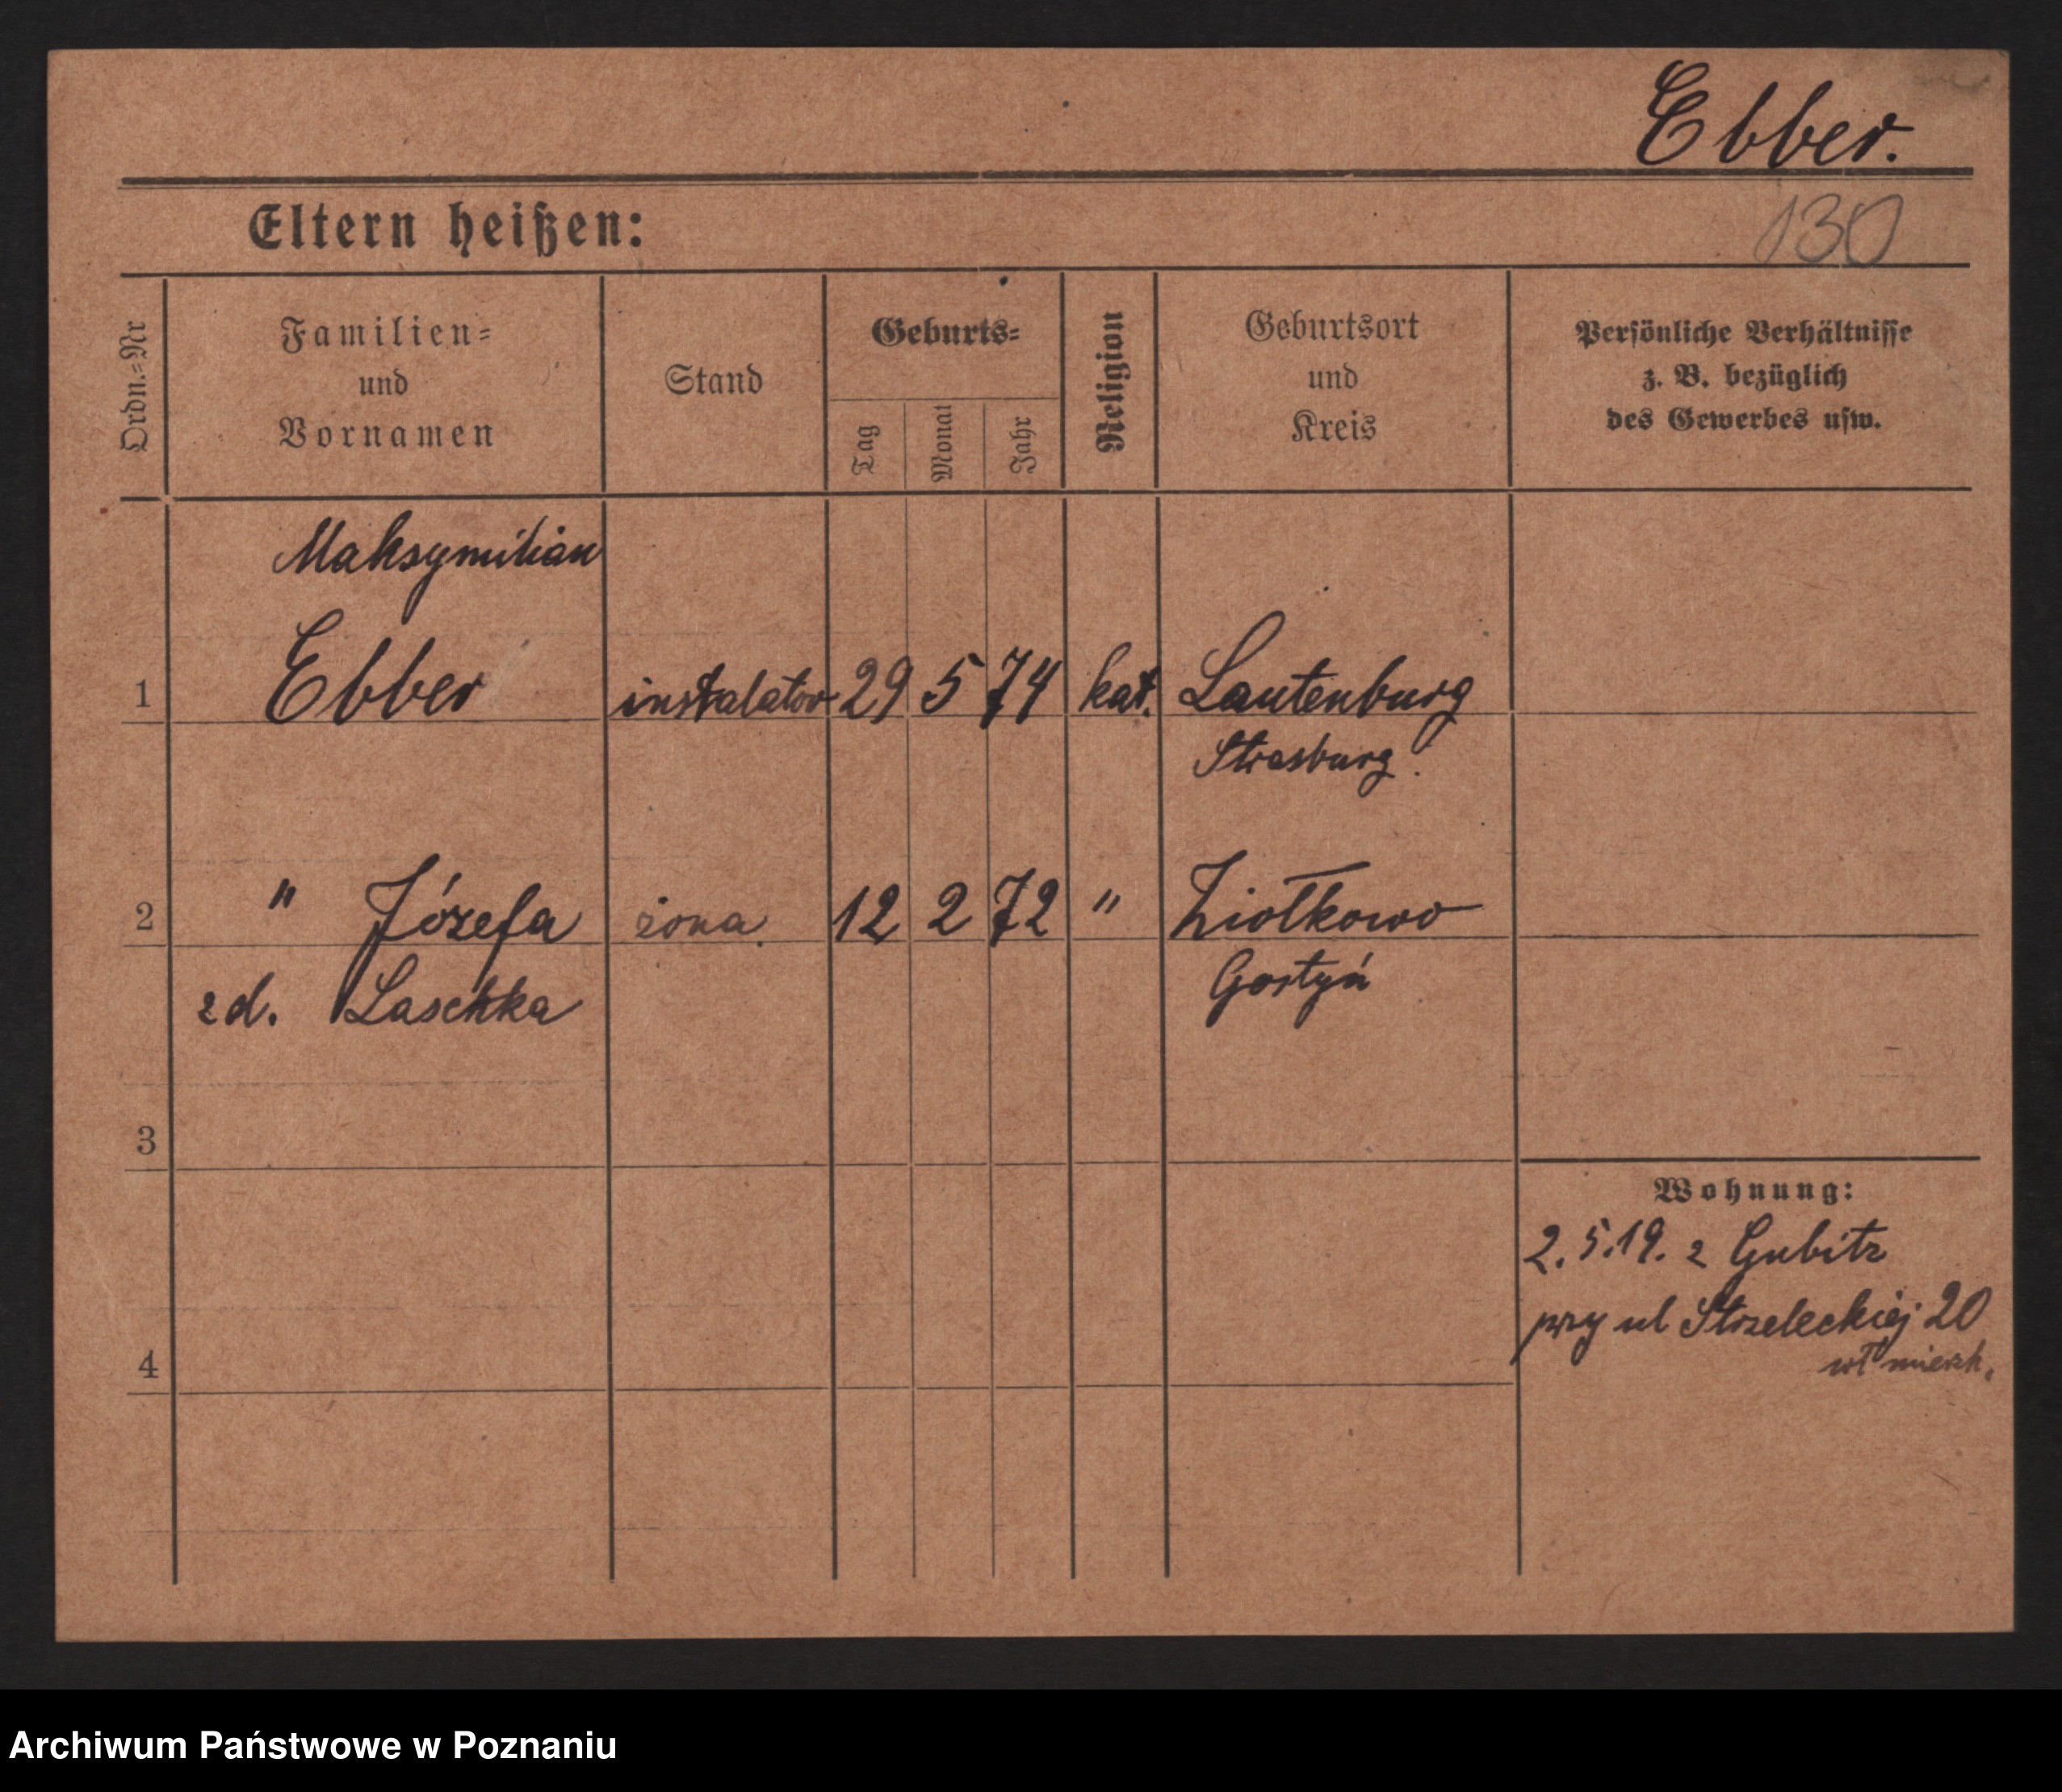 Ebber.
Eltern heißen:
130
Ordn.=Nr
Familien=
und
Vornamen
Stand
Geburts=
Tag
Monat
Jahr
Religion
Geburtsort
und
Kreis
Persönliche Verhältnisse
z. B. bezüglich
des Gewerbes usw.
Maksymilian
1 Ebber instalator 29 5 74 kat. Lautenburg
Strasburg.
2 " Józefa żona 12 2 72 " Ziołkowo
zd. Laschka Gostyń
3
Wohnung:
2.5.19. z Gubitz
przy ul Strzeleckiej 20
wł mieszk.
4
Archiwum Państwowe w Poznaniu